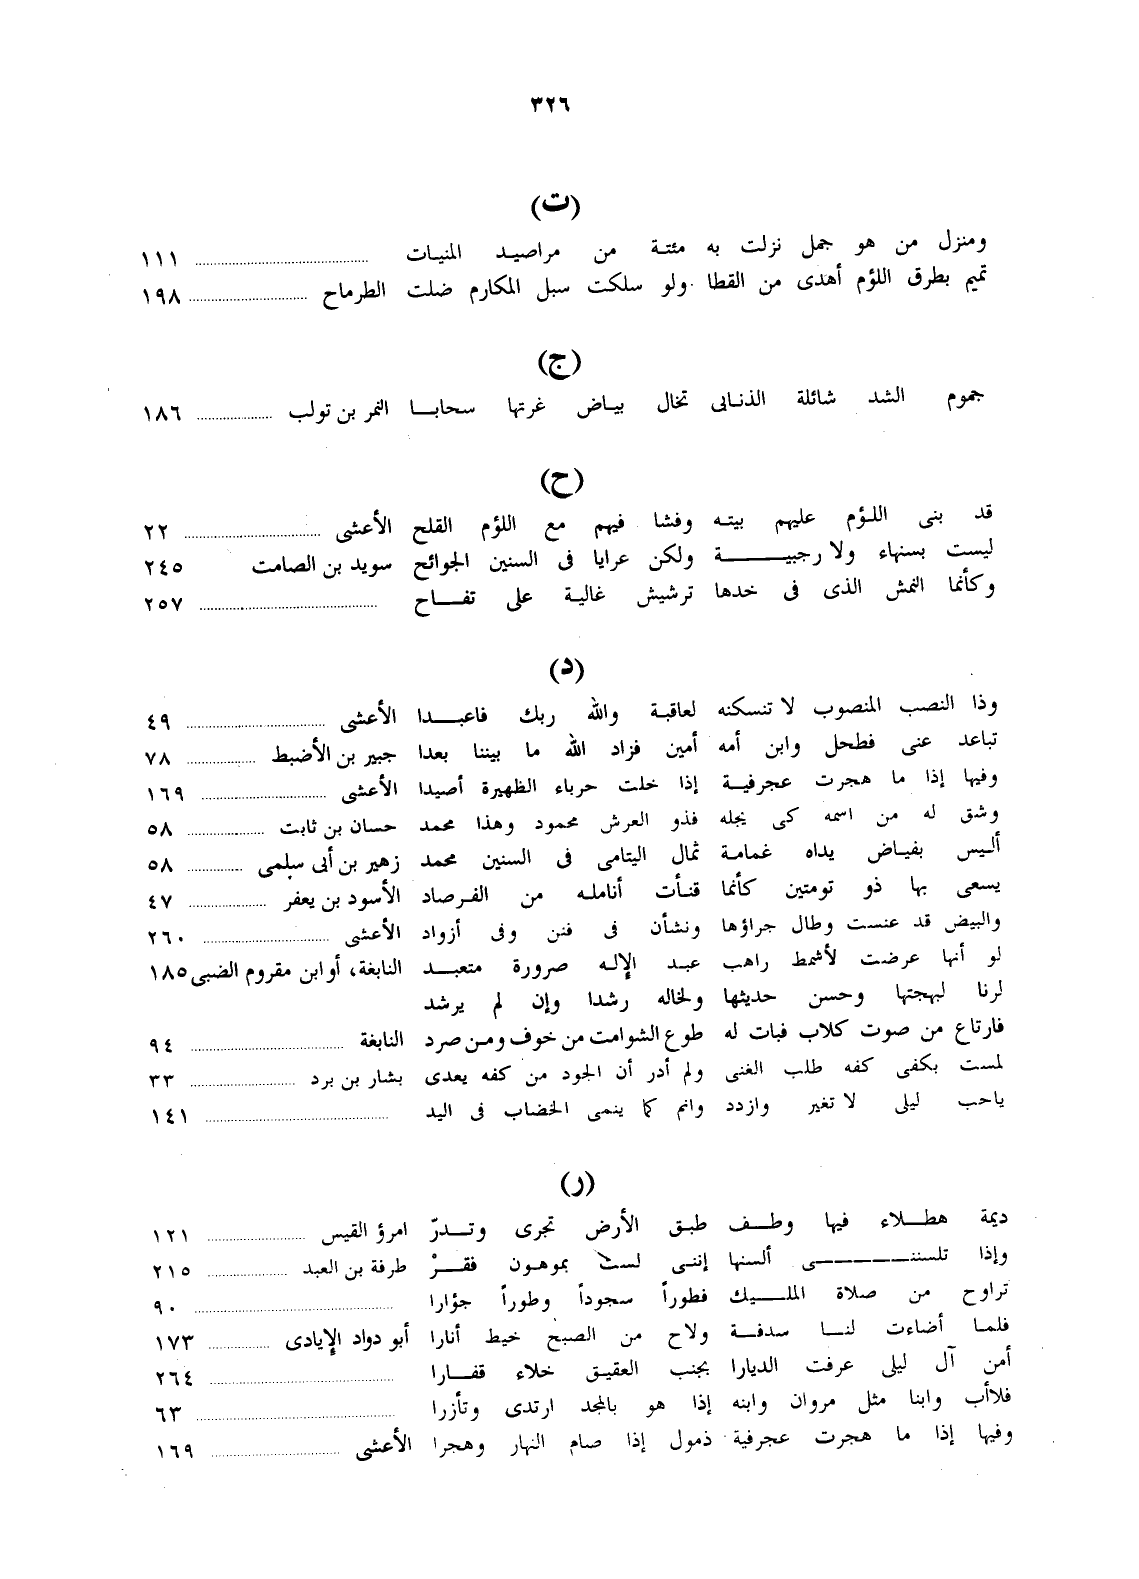 ٣٢٦
(ت)
ومنزل من هو جمل نزلت به مئتة من مراصيد المنيات ........ ١١١
تميم بطرق اللؤم أهدى من القطا ولو سلكت سبل المكارم ضلت الطرماح ........ ١٩٨
(ج)
جموم الشد شائلة الذنابى تخال بياض غرتها سحابا النمر بن تولب ........ ١٨٦
(ح)
قد بنى اللؤم عليهم بيته وفشا فيهم مع اللؤم القلح الأعشى ........ ٢٢
ليست بسنهاء ولا رجبية ولكن عرايا فى السنين الجوائح سويد بن الصامت ٢٤٥
وكأنما النمش الذى فى خدها ترشيش غالية على تفاح ........ ٢٥٧
(د)
وذا النصب المنصوب لا تنسكنه لعاقبة والله ربك فاعبدا الأعشى ........ ٤٩
تباعد عنى فطحل وابن أمه أمين فزاد الله ما بيننا بعدا جبير بن الأضبط ........ ٧٨
وفيها إذا ما هجرت عجرفية إذا خلت حرباء الظهيرة أصيدا الأعشى ........ ١٦٩
وشق له من اسمه كى يجله فذو العرش محمود وهذا محمد حسان بن ثابت ........ ٥٨
أليس بفياض يداه غمامة ثمال اليتامى فى السنين محمد زهير بن أبى سلمى ........ ٥٨
يسعى بها ذو تومتين كأنما قنأت أنامله من الفرصاد الأسود بن يعفر ........ ٤٧
والبيض قد عنست وطال جراؤها ونشأن فى فنن وفى أزواد الأعشى ........ ٢٦٠
لو أنها عرضت لأشمط راهب عبد الإله صرورة متعبد النابغة، أو ابن مقروم الضبى ١٨٥
لرنا لبهجتها وحسن حديثها ولخاله رشدا وإن لم يرشد
فارتاع من صوت كلاب فبات له طوع الشوامت من خوف ومن صرد النابغة ........ ٩٤
لمست بكفى كفه طلب الغنى ولم أدر أن الجود من كفه يعدى بشار بن برد ........ ٣٣
ياحب ليلى لا تغير وازدد وانم كما ينمى الخضاب فى اليد ........ ١٤١
(ر)
ديمة هطلاء فيها وطف طبق الأرض تجرى وتدرّ امرؤ القيس ........ ١٢١
وإذا تلسننى ألسنها إننى لست بموهون فقرْ طرفة بن العبد ........ ٢١٥
تراوح من صلاة المليك فطوراً سجوداً وطوراً جؤارا ........ ٩٠
فلما أضاءت لنا سدفة ولاح من الصبح خيط أنارا أبو دواد الإيادى ........ ١٧٣
أمن آل ليلى عرفت الديارا بجنب العقيق خلاء قفارا ........ ٢٦٤
فلاأب وابنا مثل مروان وابنه إذا هو بالمجد ارتدى وتأزرا ........ ٦٣
وفيها إذا ما هجرت عجرفية ذمول إذا صام النهار وهجرا الأعشى ........ ١٦٩